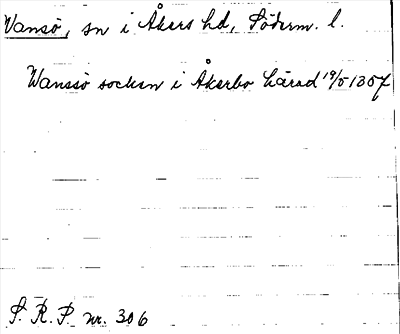 Vansö, sn i Åkers hd, Söderm. l.
Wanssö sockn i Åkerbo härad 19/5 1357
S. R. P. nr. 306